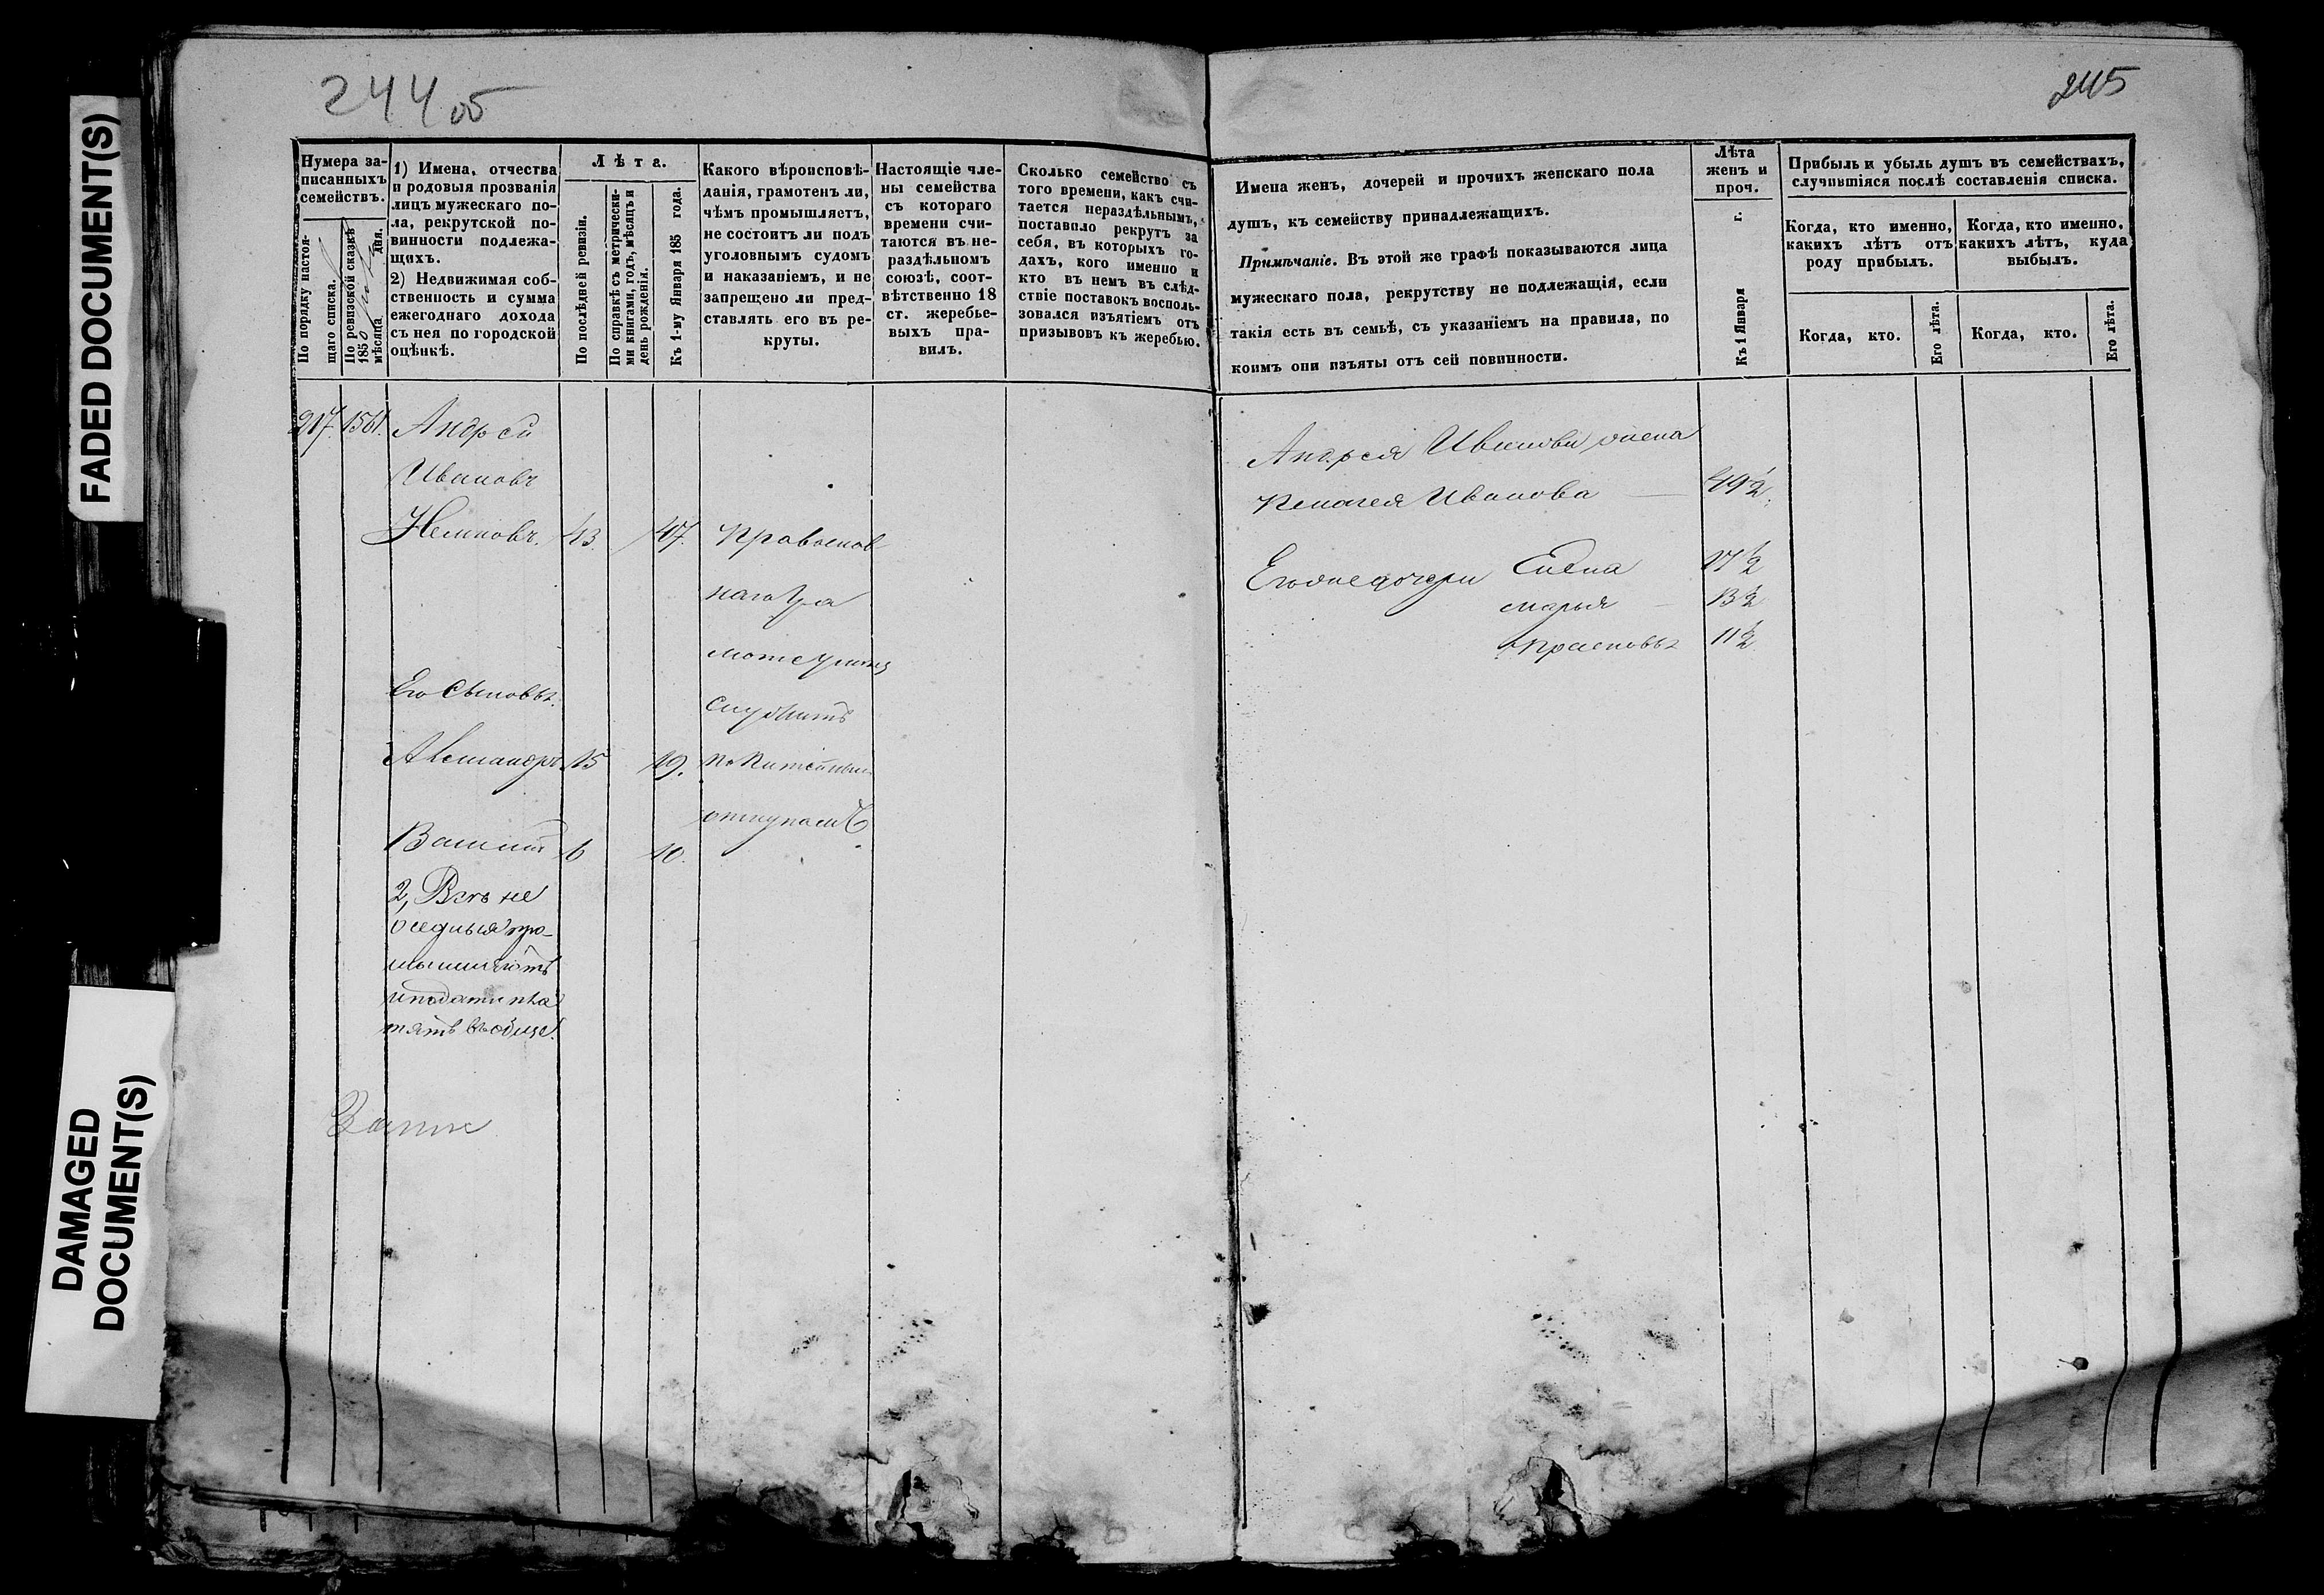 FADED DOCUMENT(S)
DAMAGED
DOCUMENT(S)
244 об
245
Нумера за-
писанныхъ
семействъ.
По порядку настоя-
щаго списка.
По ревизской сказкѣ
1850
мѣсяца дня.
1) Имена, отчества
и родовыя прозванія
лицъ мужескаго по-
ла, рекрутской по-
винности подлежа-
щихъ.
2) Недвижимая соб-
ственность и сумма
ежегоднаго дохода
съ нея по городской
оцѣнкѣ.
Лѣта.
По послѣдней ревизіи.
По справкѣ съ метрически-
ми книгами, годъ, мѣсяцъ и
день рожденія.
Къ 1-му Января 185 года.
Какого вѣроисповѣ-
данія, грамотенъ ли,
чѣмъ промышляетъ,
не состоитъ ли подъ
уголовнымъ судомъ
и наказаніемъ, и не
запрещено ли пред-
ставлять его въ ре-
круты.
Настоящіе чле-
ны семейства
съ котораго
времени счи-
таются въ не-
раздѣльномъ
союзѣ, соот-
вѣтственно 18
ст. жеребье-
выхъ пра-
вилъ.
Сколько семейство съ
того времени, какъ счи-
тается нераздѣльнымъ,
поставило рекрутъ за
себя, въ которыхъ го-
дахъ, кого именно и
кто въ немъ въ слѣд-
ствіе поставокъ восполь-
зовался изъятіемъ отъ
призывовъ къ жеребью.
Имена женъ, дочерей и прочихъ женскаго пола
душъ, къ семейству принадлежащихъ.
Примѣчаніе. Въ этой же графѣ показываются лица
мужескаго пола, рекрутству не подлежащія, если
такія есть въ семьѣ, съ указаніемъ на правила, по
коимъ они изъяты отъ сей повинности.
Лѣта
женъ и
проч.
Къ 1 Января г.
Прибыль и убыль душъ въ семействахъ,
случившіяся послѣ составленія списка.
Когда, кто именно,
какихъ лѣтъ отъ
роду прибылъ.
Когда, кто именно,
какихъ лѣтъ, куда
выбылъ.
Когда, кто.
Его лѣта.
Когда, кто.
Его лѣта.
217. 1561. Андрей
Ивановъ
43. 47. Православ
наго Гра
мотеynbsp
Его Сыновья.
служитъ
Александръ 15 19. по Питейнымъ
откупамъ
Василій 6 10.
2, Всѣ не
оседлыя про-
мышляютъ
и подати пла
тятъ въ обще.
Андрея Иванова жена
Пелагея Иванова 49½.
Его же дочери Елена 17½
Марья 13½
Прасковья 11½